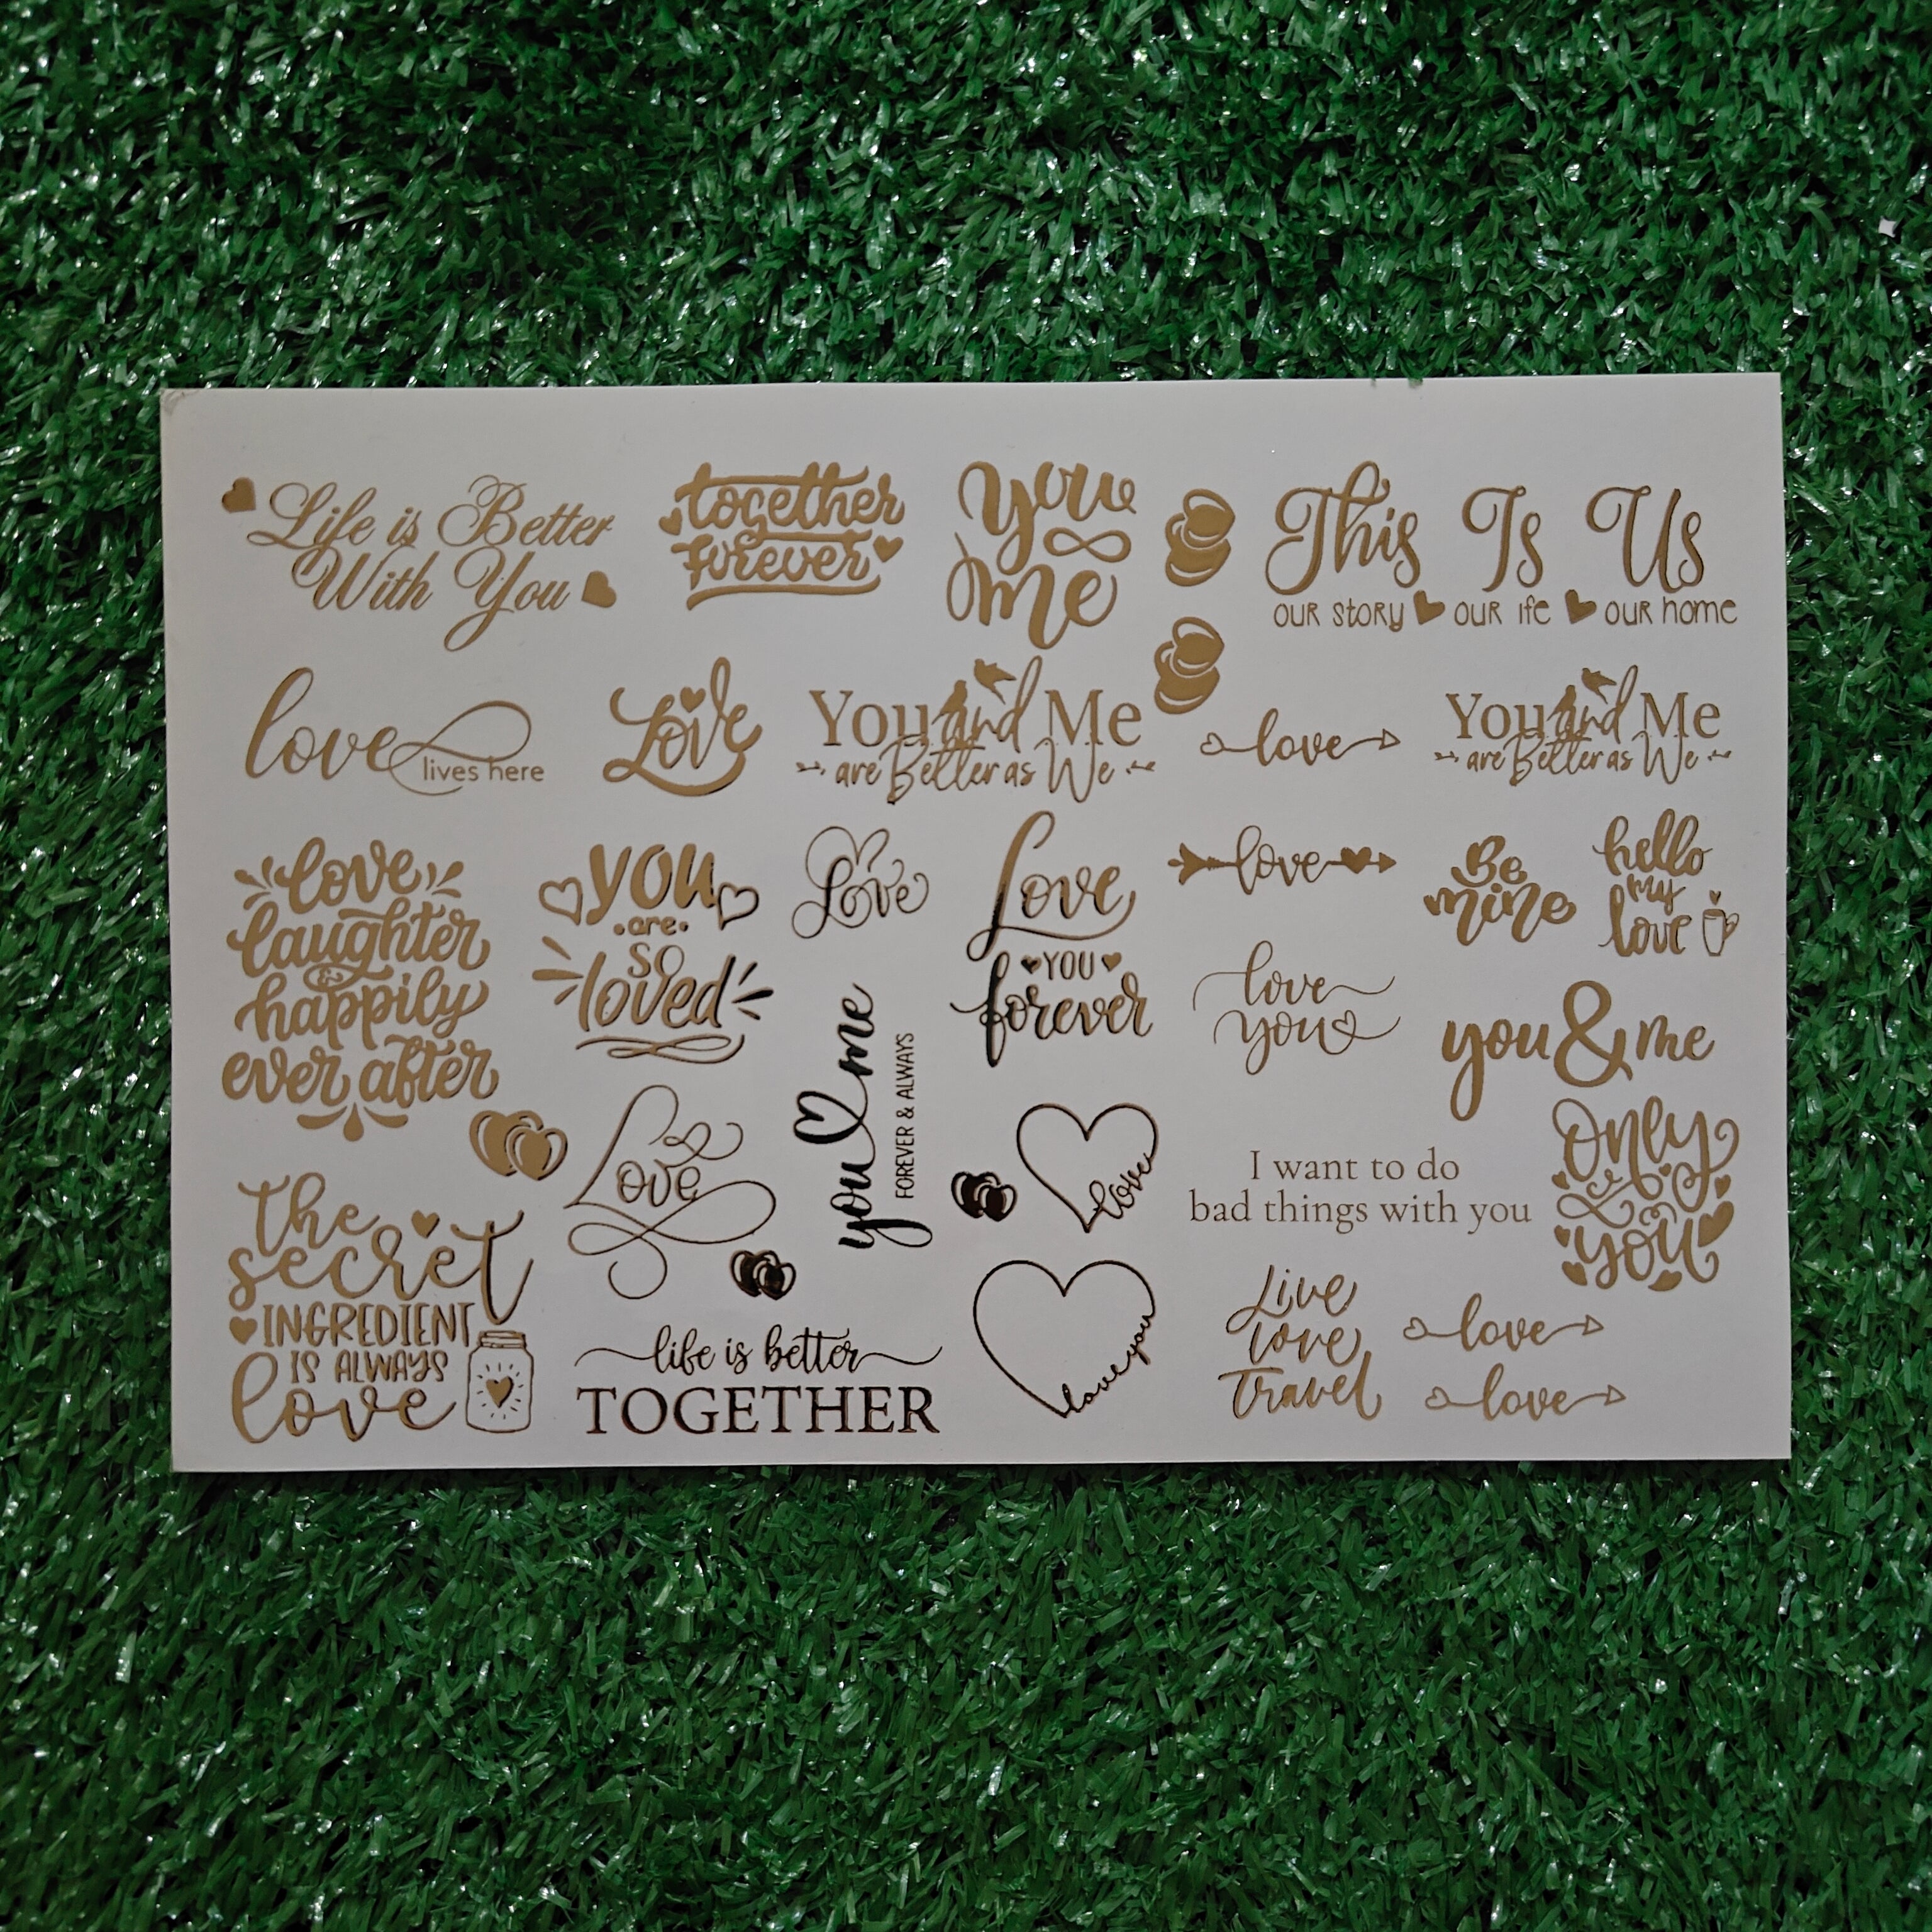 Life is Better
With You
together
forever
You
me
This Is Us
our story our ife our home
love
lives here
Love
You and Me
are Better as We
love
You and Me
are Better as We
love
laughter
&
happily
ever after
you
are
so
loved
Love
Love
YOU
forever
love
Be
mine
hello
my
love
love
you
you & me
you me
FOREVER & ALWAYS
Love
love
I want to do
bad things with you
Only
you
the
secret
INGREDIENT
IS ALWAYS
love
life is better
TOGETHER
love you
Live
love
Travel
love
love